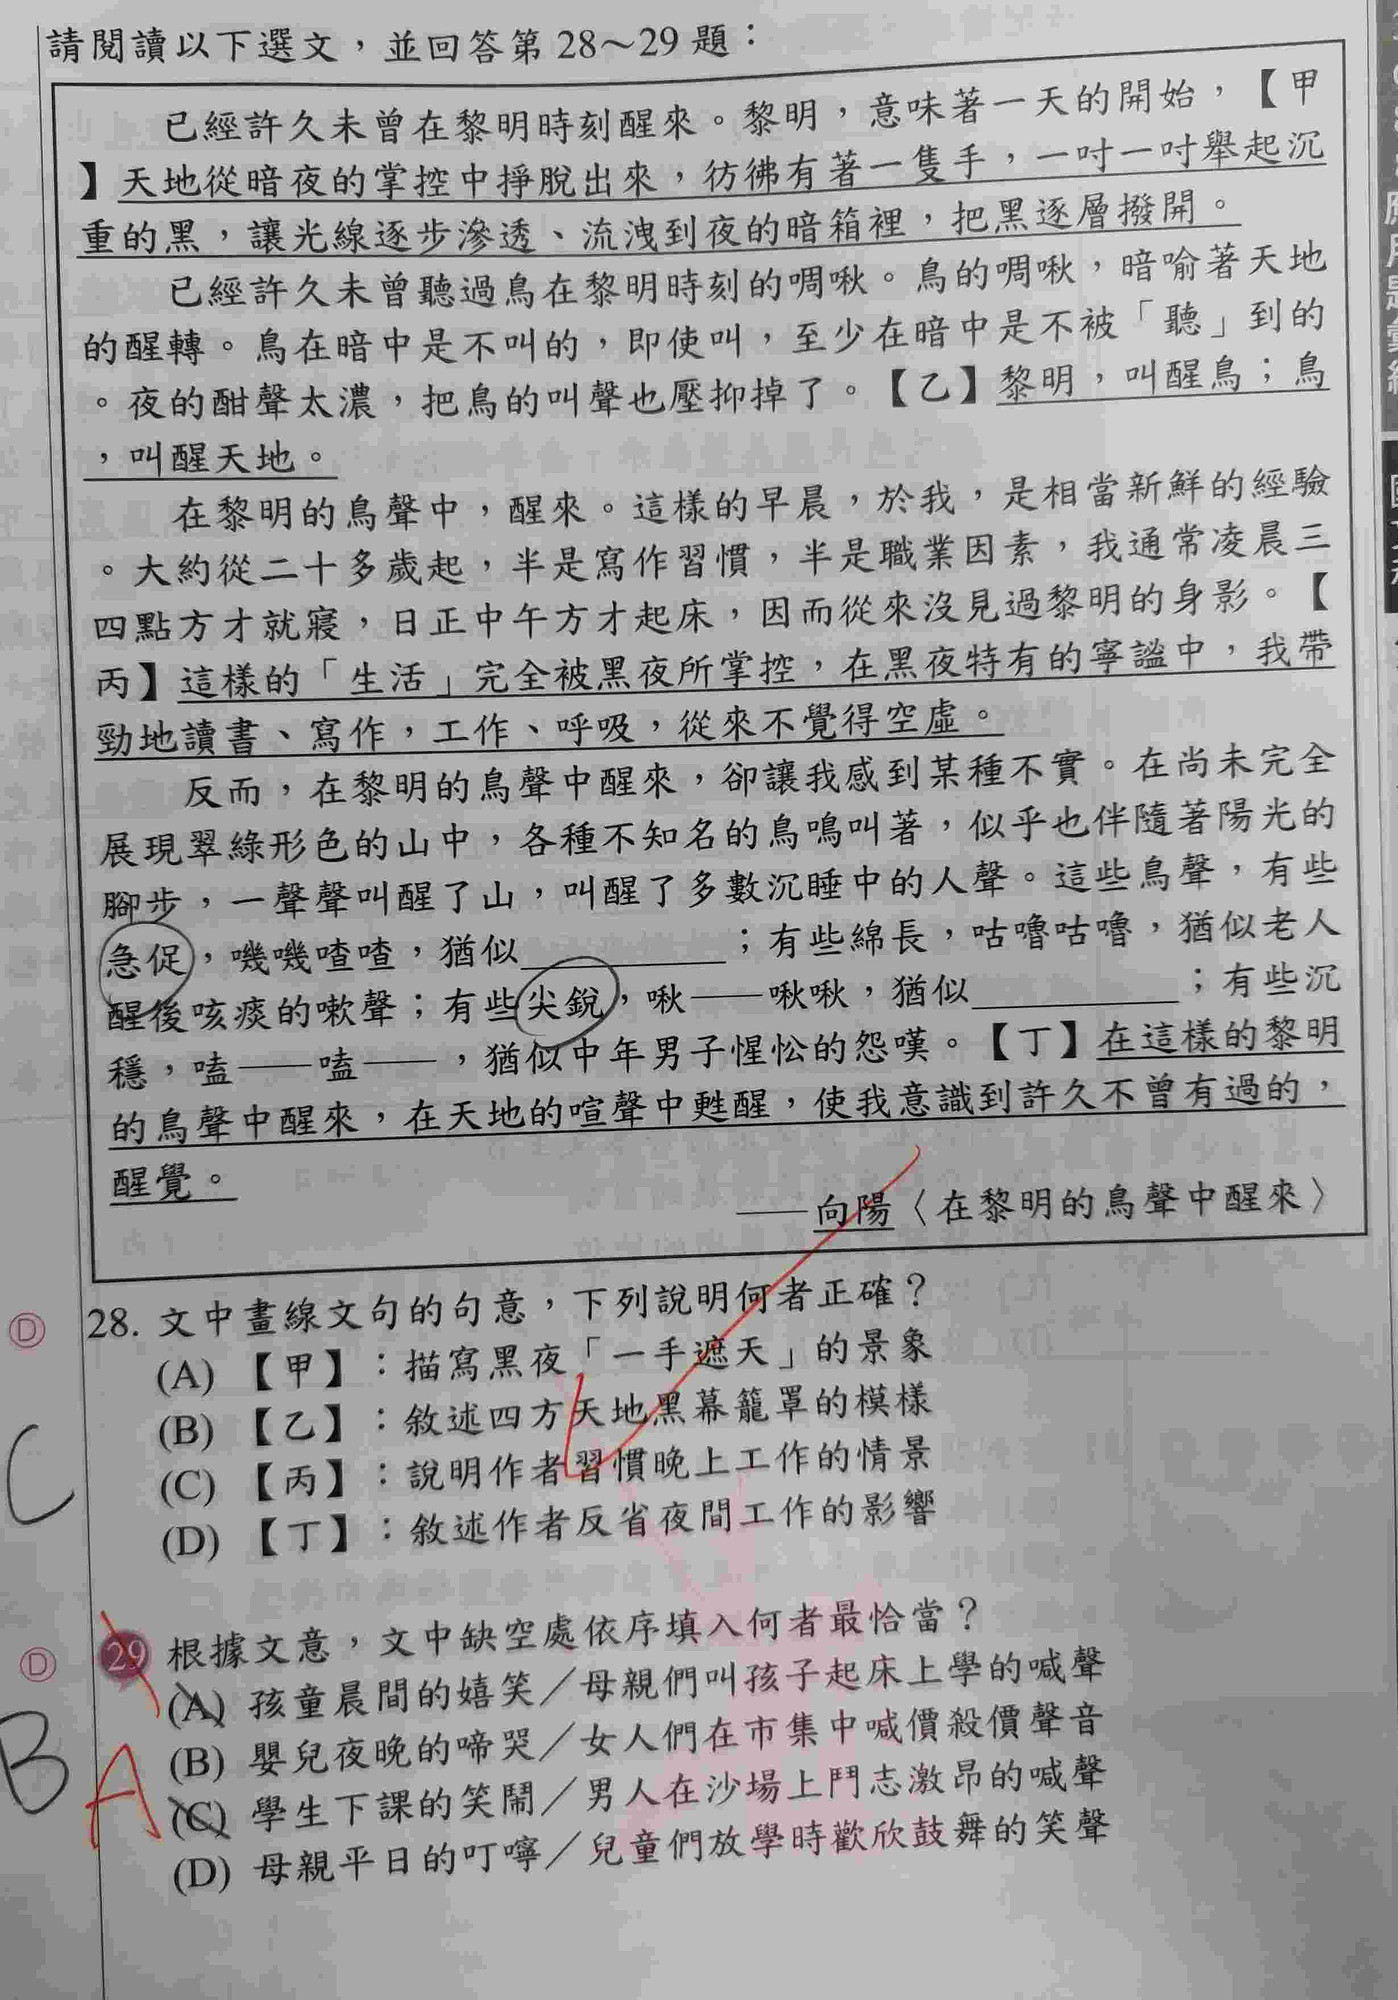 請閱讀以下選文，並回答第 28～29 題：
已經許久未曾在黎明時刻醒來。黎明，意味著一天的開始，【甲
】天地從暗夜的掌控中掙脫出來，彷彿有著一隻手，一吋一吋舉起沉
重的黑，讓光線逐步滲透、流洩到夜的暗箱裡，把黑逐層撥開。
已經許久未曾聽過鳥在黎明時刻的啁啾。鳥的啁啾，暗喻著天地
的醒轉。鳥在暗中是不叫的，即使叫，至少在暗中是不被「聽」到的
。夜的酣聲太濃，把鳥的叫聲也壓抑掉了。【乙】黎明，叫醒鳥；鳥
，叫醒天地。
在黎明的鳥聲中，醒來。這樣的早晨，於我，是相當新鮮的經驗
。大約從二十多歲起，半是寫作習慣，半是職業因素，我通常凌晨三
四點方才就寢，日正中午方才起床，因而從來沒見過黎明的身影。【
丙】這樣的「生活」完全被黑夜所掌控，在黑夜特有的寧謐中，我帶
勁地讀書、寫作，工作、呼吸，從來不覺得空虛。
反而，在黎明的鳥聲中醒來，卻讓我感到某種不實。在尚未完全
展現翠綠形色的山中，各種不知名的鳥鳴叫著，似乎也伴隨著陽光的
腳步，一聲聲叫醒了山，叫醒了多數沉睡中的人聲。這些鳥聲，有些
急促，嘰嘰喳喳，猶似＿＿＿＿＿；有些綿長，咕嚕咕嚕，猶似老人
醒後咳痰的嗽聲；有些尖銳，啾——啾啾，猶似＿＿＿＿＿；有些沉
穩，嗑——嗑——，猶似中年男子惺忪的怨嘆。【丁】在這樣的黎明
的鳥聲中醒來，在天地的喧聲中甦醒，使我意識到許久不曾有過的，
醒覺。
——向陽〈在黎明的鳥聲中醒來〉
D 28. 文中畫線文句的句意，下列說明何者正確？
(A) 【甲】：描寫黑夜「一手遮天」的景象
(B) 【乙】：敘述四方天地黑幕籠罩的模樣
C (C) 【丙】：說明作者習慣晚上工作的情景
(D) 【丁】：敘述作者反省夜間工作的影響
D 29 根據文意，文中缺空處依序填入何者最恰當？
(A) 孩童晨間的嬉笑／母親們叫孩子起床上學的喊聲
B (B) 嬰兒夜晚的啼哭／女人們在市集中喊價殺價聲音
A (C) 學生下課的笑鬧／男人在沙場上鬥志激昂的喊聲
(D) 母親平日的叮嚀／兒童們放學時歡欣鼓舞的笑聲